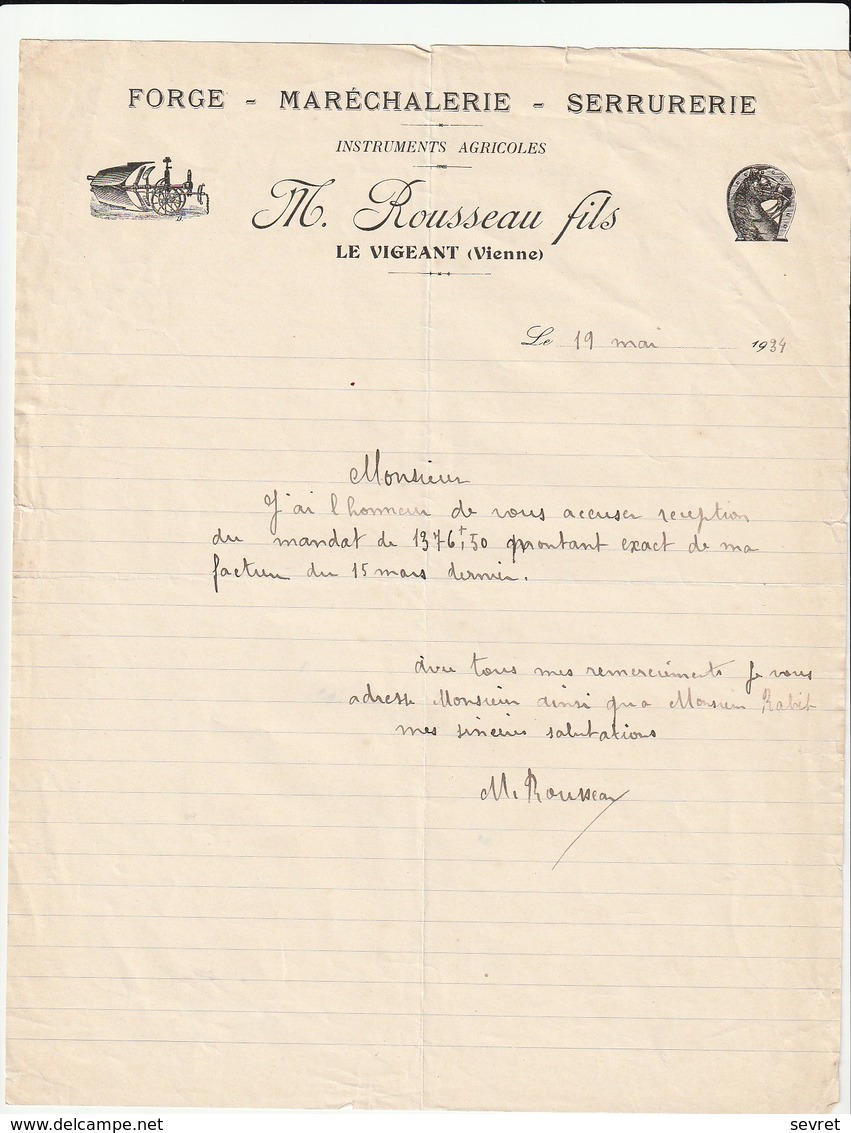 FORGE - MARÉCHALERIE - SERRURERIE
INSTRUMENTS AGRICOLES
M. Rousseau fils
LE VIGEANT (Vienne)
Le 19 mai 1934
Monsieur
J'ai l'honneur de vous accuser reception
du mandat de 1376f,50 montant exact de ma
facture du 15 mars dernier.
avec tous mes remerciements je vous
adresse Monsieur ainsi qu'a Monsieur
mes sincères salutations
M. Rousseau
www.delcampe.net
sevret